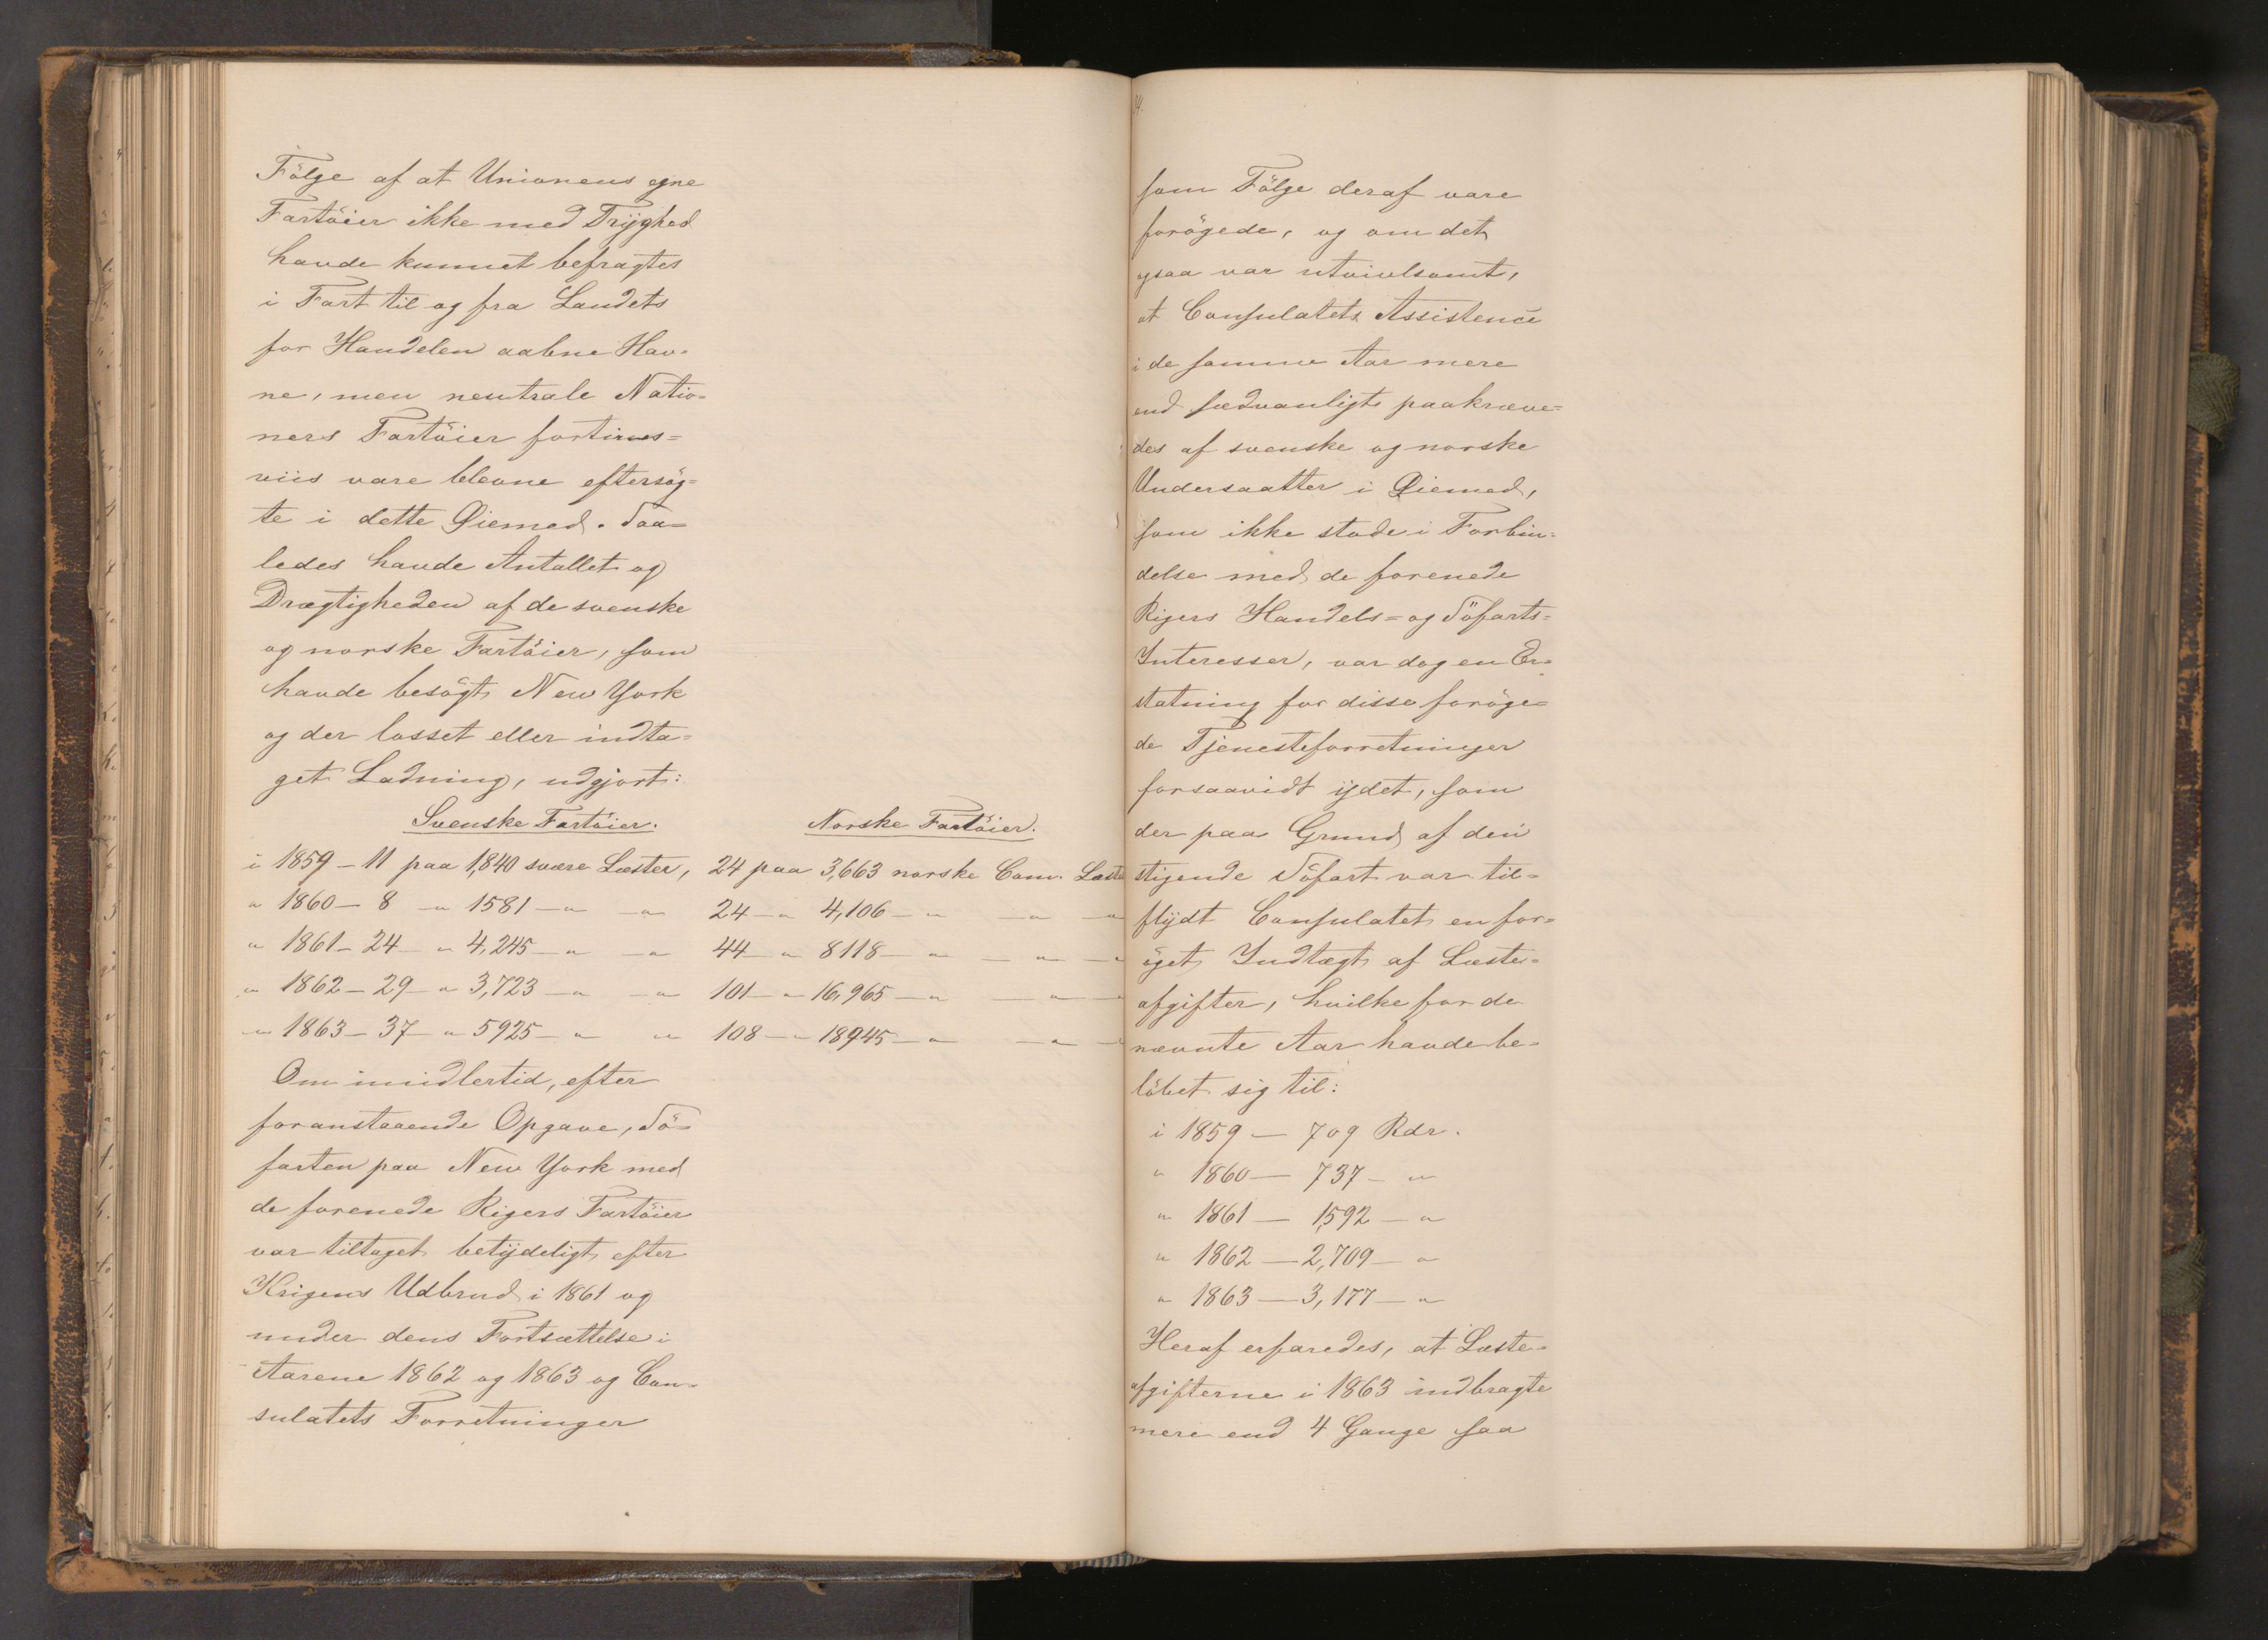 Fölge af at Unionens egne
Fartöier ikke med Tryghed
havde kunnet befragtes
i Fart til og fra Landets
for Handelen aabne Hav-
ne, men neutrale Natio-
ners Fartöier fortrins-
viis vare blevne eftersög-
te i dette Øiemed. Saa-
ledes havde Antallet og
Drægtigheden af de svenske
og norske Fartöier, som
havde besögt New York
og der losset eller indta-
get Ladning, udgjort:
Svenske Fartöier. Norske Fartöier.
i 1859 - 11 paa 1,840 svære Læster, 24 paa 3,663 norske Com. Læster
" 1860 - 8 - " 1581 - " - " 24 - " 4,106 - " - " - "
" 1861 - 24 - " 4,245 - " - " 44 - " 8118 - " - " - "
" 1862 - 29 - " 3,723 - " - " 101 - " 16,965 - " - " - "
" 1863 - 37 - " 5925 - " " 108 - " 18945 - " - " - "
Om imidlertid, efter
foranstaaende Opgave, Sö-
farten paa New York med
de forenede Rigers Fartöier
var tiltaget betydeligt efter
Krigens Udbrud i 1861 og
under dens Fortsættelse i
Aarene 1862 og 1863 og Con-
sulatets Forretninger
som Fölge deraf vare
forögede, og om det
ogsaa var utvivlsomt,
at Consulatets Assistence
i de samme Aar mere
end sædvanligt paakræve-
des af svenske og norske
Undersaatter i Øiemed,
som ikke stode i Forbin-
delse med de forenede
Rigers Handels- og Söfarts-
Interesser, var dog en Er-
statning for disse foröge-
de Tjenesteforretninger
forsaavidt ydet, som
der paa Grund af den
stigende Söfart var til-
flydt Consulatet en for-
öget Indtægt af Læste-
afgifter, hvilke for de
nævnte Aar havde be-
löbet sig til:
i 1859 - 709 Rdr.
" 1860 - 737 - "
" 1861 - 1,592 - "
" 1862 - 2,709 - "
" 1863 - 3,177 - "
Heraf erfaredes, at Læste-
afgifterne i 1863 indbragte
mere end 4 Gange saa